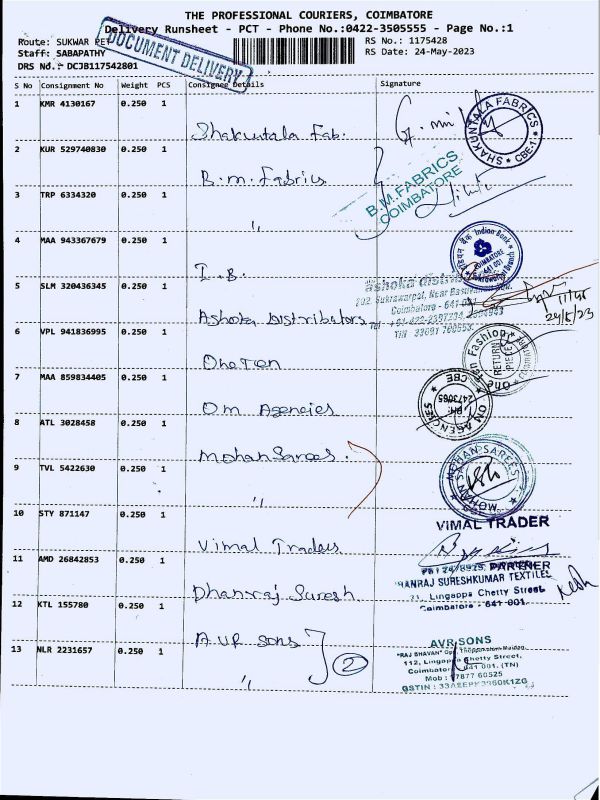 THE PROFESSIONAL COURIERS, COIMBATORE
Delivery Runsheet - PCT - Phone No.:0422-3505555 - Page No.:1
Route: SUKWAR PET
RS No.: 1175428
Staff: SABAPATHY
RS Date: 24-May-2023
DRS No.: DCJB117542801
DOCUMENT DELIVERY
S No Consignment No Weight PCS Consignee Details Signature
1 KMR 4130167 0.250 1 Shakuntala Fab.
SHAKUNTALA FABRICS * CBE-1 *
2 KUR 529740830 0.250 1 B.M. Fabrics
B.M.FABRICS
COIMBATORE
3 TRP 6334320 0.250 1 "
4 MAA 943367679 0.250 1 I.B
Indian Bank
COIMBATORE
641 001
5 SLM 320436345 0.250 1 Ashoka Distributors
Coimbatore - 641
11:45
24/5/23
6 VPL 941836995 0.250 1 One Ten
One Ten Fashion
RETURN
7 MAA 859834405 0.250 1 Om Agencies
OM AGENCIES
CBE
8 ATL 3028458 0.250 1 Mohan Sarees.
MOHAN SAREES
9 TVL 5422630 0.250 1 "
10 STY 871147 0.250 1 Vimal Traders
VIMAL TRADER
PARTNER
11 AMD 26842853 0.250 1 Dhanraj Suresh
HANRAJ SURESHKUMAR TEXTILES
21, Lingappa Chetty Street
Coimbatore - 641 001.
12 KTL 155780 0.250 1 A.V.R Sons
2
13 NLR 2231657 0.250 1 "
AVR SONS
"RAJ BHAVAN"
112, Lingappa Chetty Street,
Coimbatore 641 001. (TN)